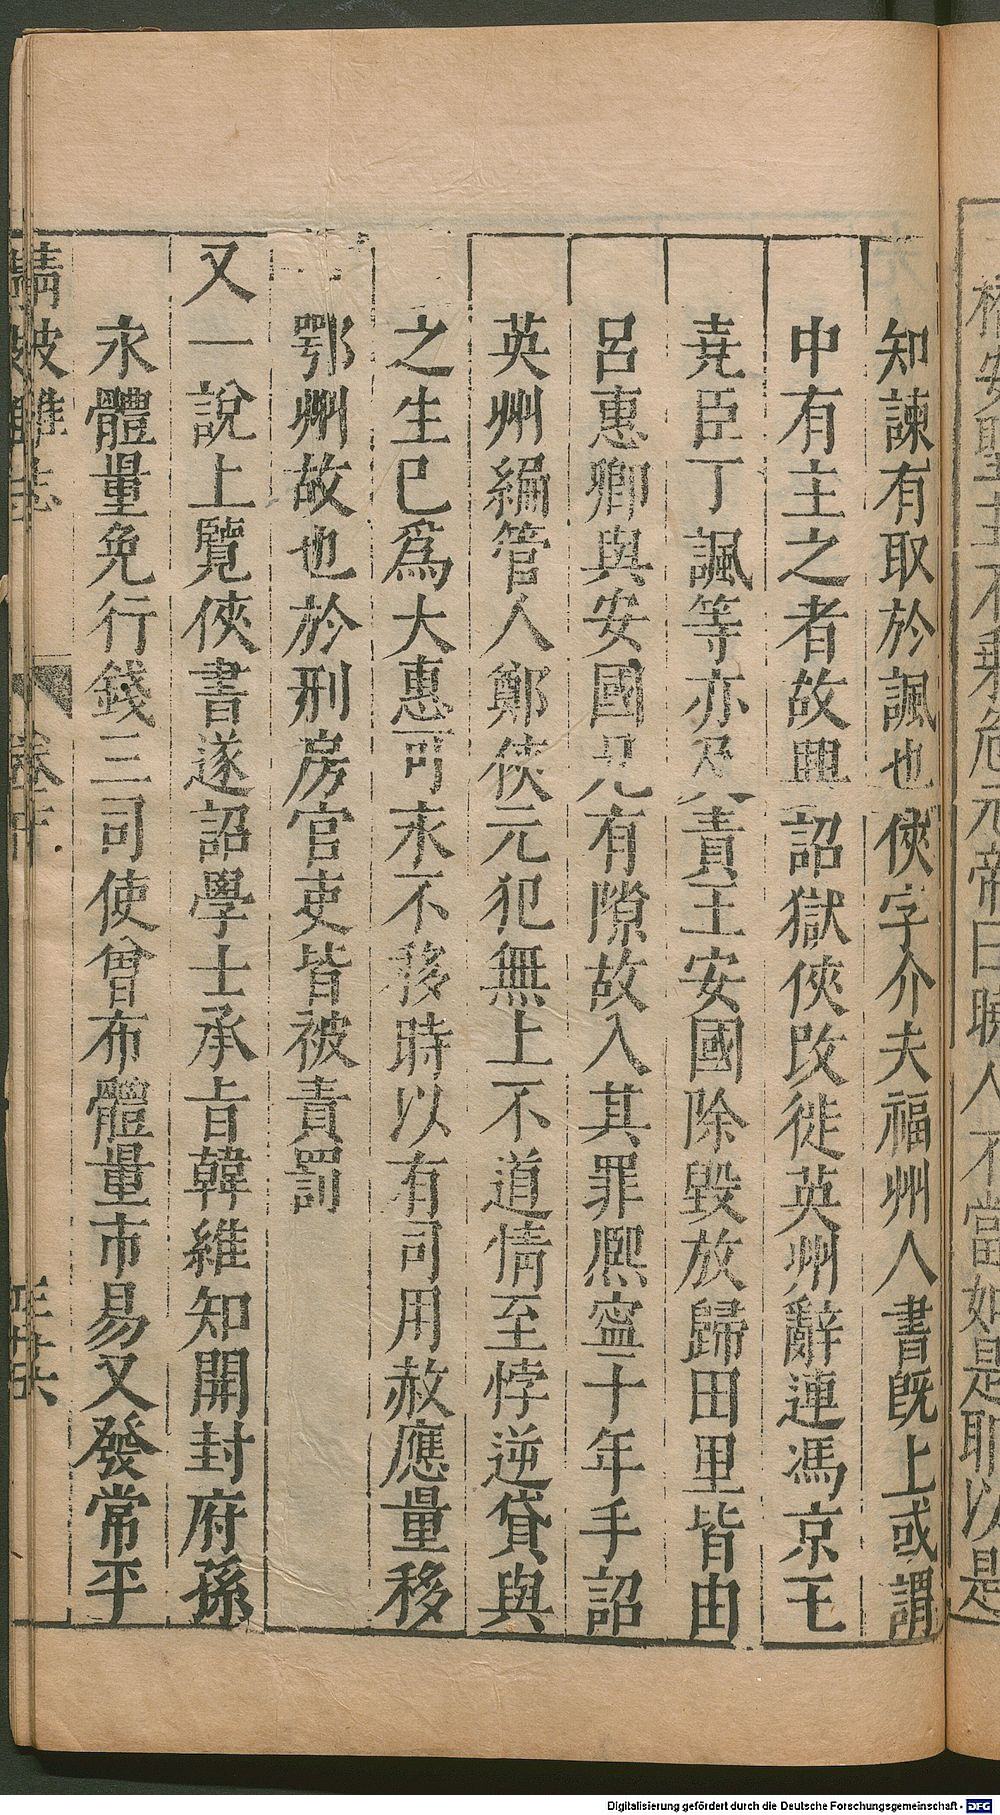 知諫有取於諷也俠字介夫福州人書既上或謂
中有主之者故興詔獄俠改徙英州辭連馮京王
堯臣丁諷等亦及責王安國除毀放歸田里皆由
呂惠卿與安國兄有隙故入其罪熙寧十年手詔
英州編管人鄭俠元犯無上不道情至悖逆貸與
之生已為大惠可永不移時以有司用赦應量移
鄂州故也於刑房官吏皆被責罰
又一說上覽俠書遂詔學士承旨韓維知開封府孫
永體量免行錢三司使曾布體量市易又發常平
清波雜志
卷十
安
不
危
元帝曰曉人不當如是耶以是
Digitalisierung gefördert durch die Deutsche Forschungsgemeinschaft - DFG